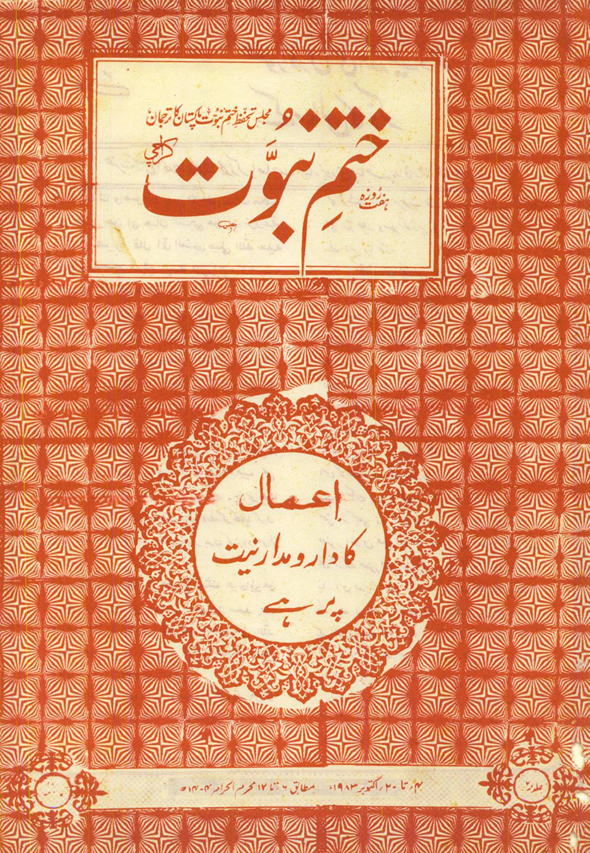 مجلس تحفظ ختم نبوت پاکستان کا ترجمان
ہفت روزہ
ختمِ نبوَّت
کراچی
إعمال
کا دارومدار نیت
پر ہے
۱۴؍ تا ۲۰؍ اکتوبر ۱۹۸۳ء مطابق ۶؍ تا ۱۲ محرم الحرام ۱۴۰۴ھ